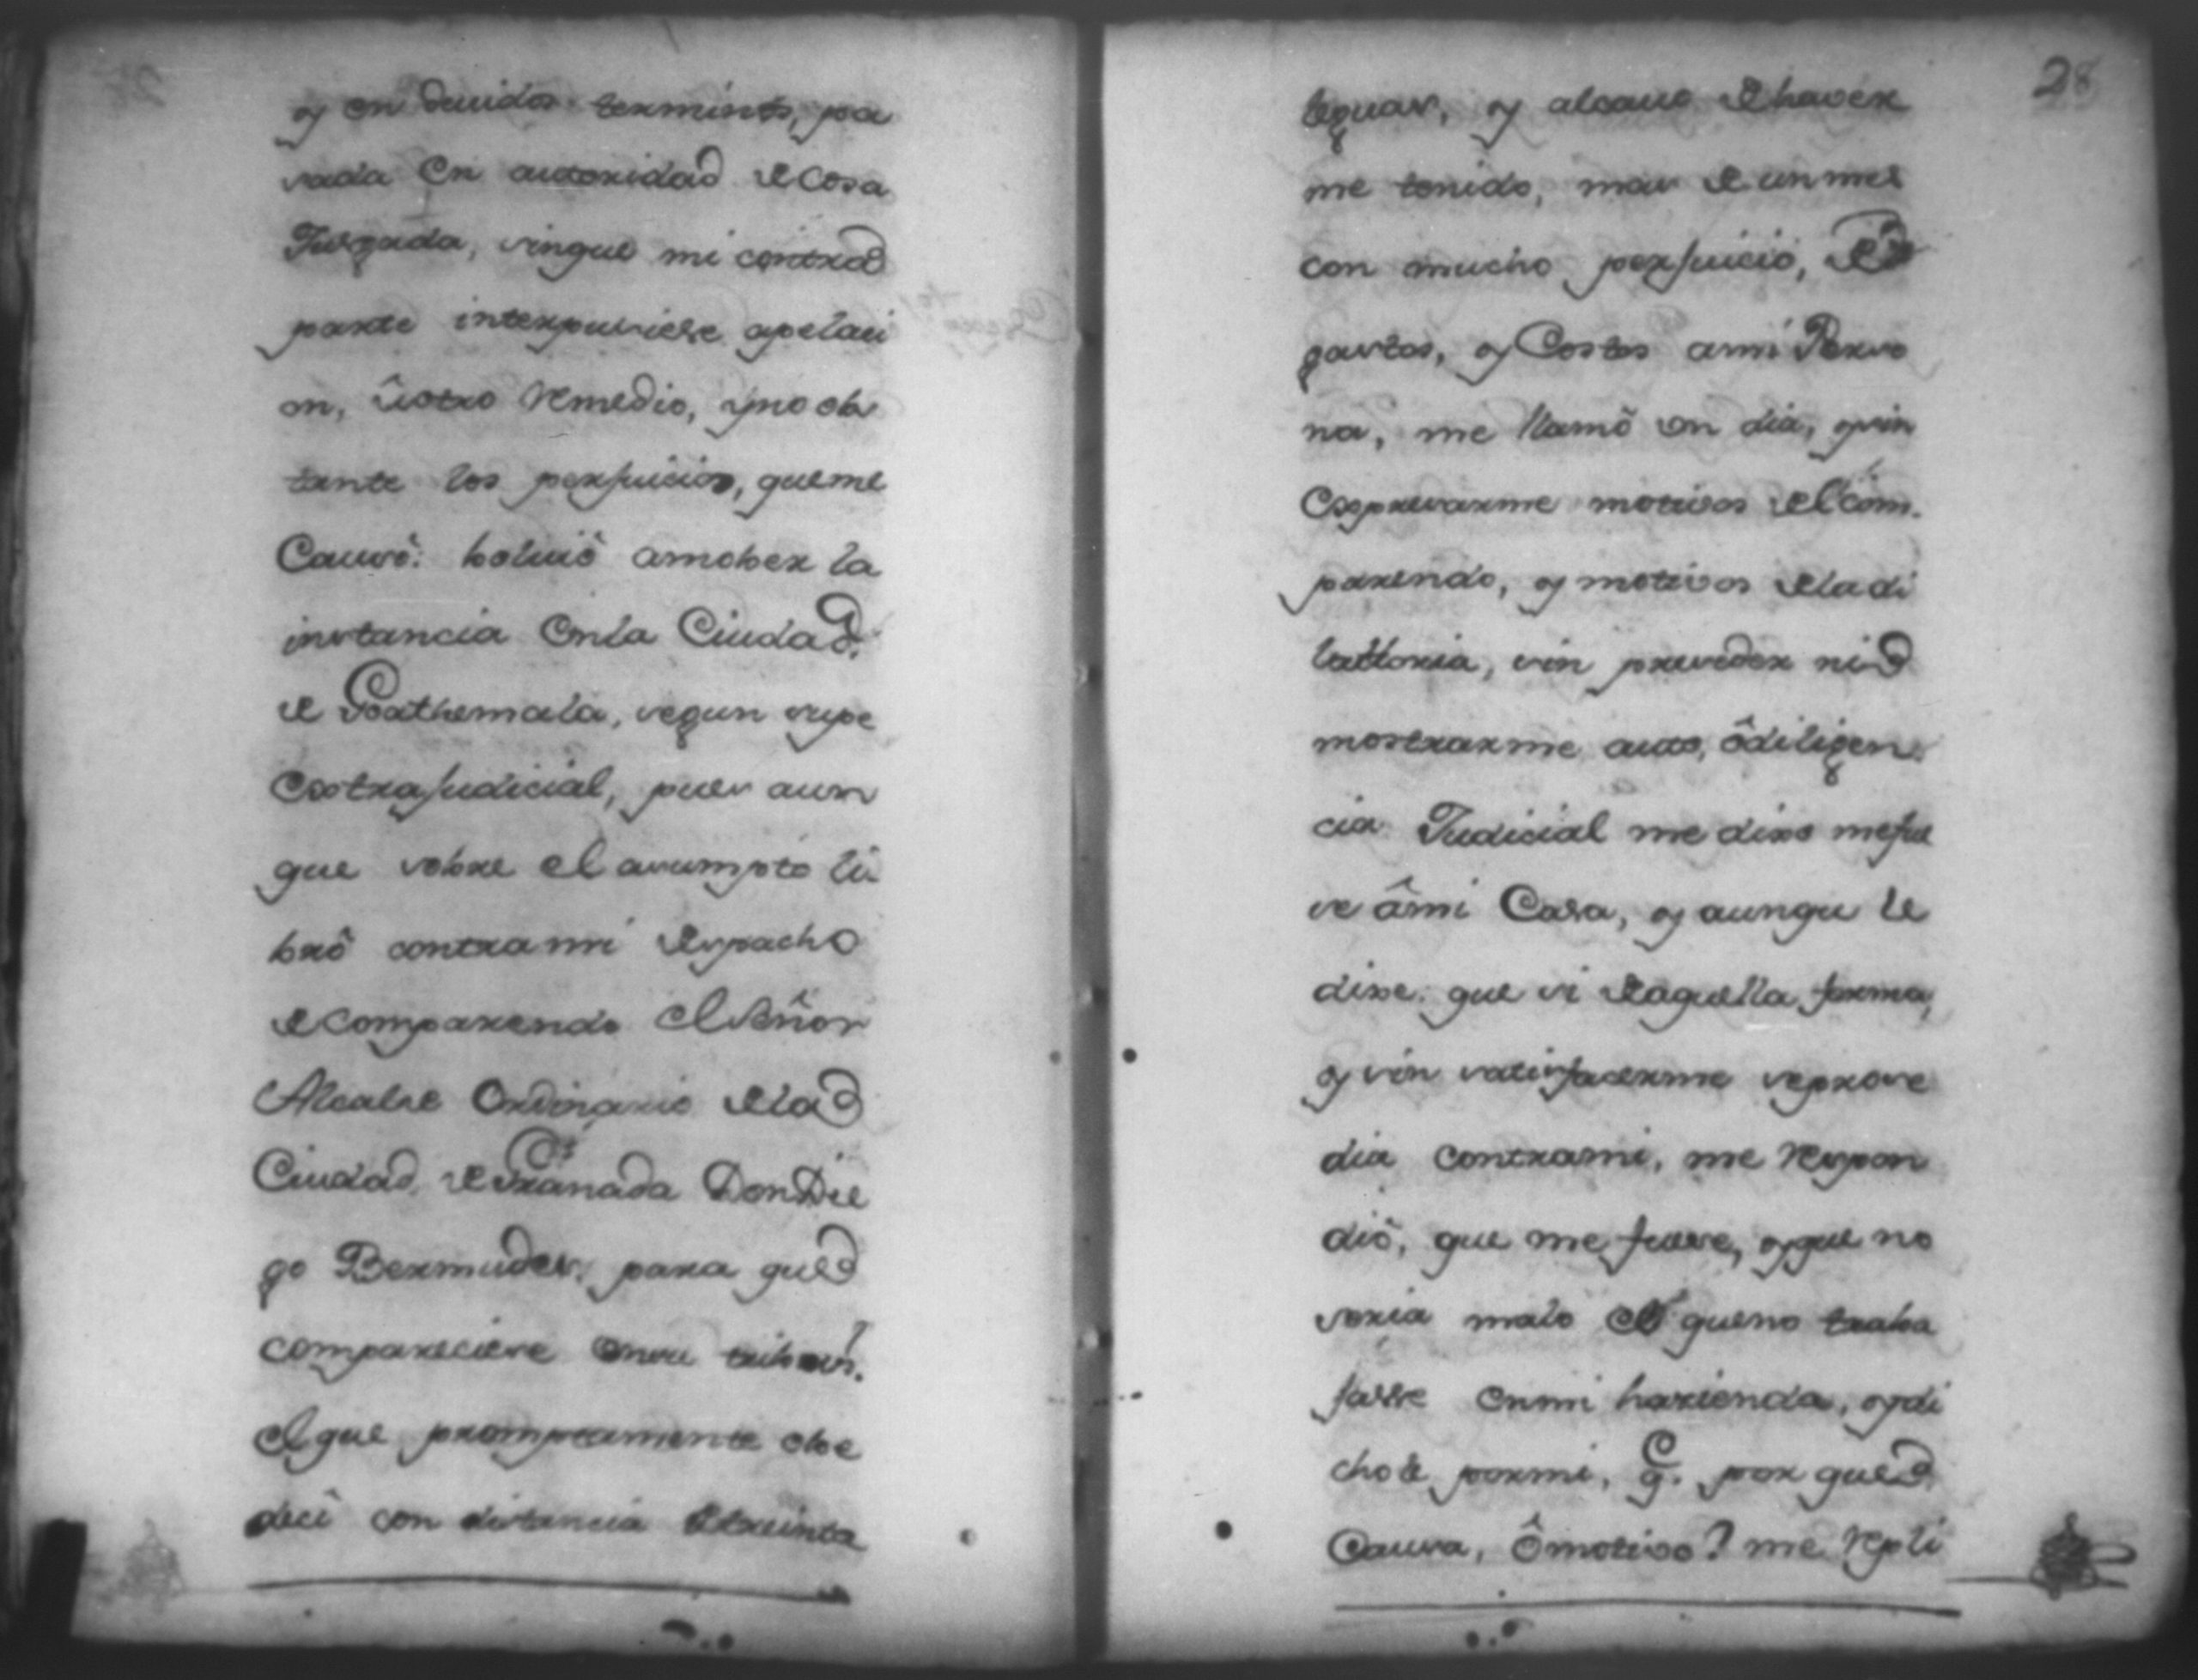 y en deuidos terminos, pa
sada en autoridad de Cosa
Jusgada, sin que mi contra
parte interpusiese apelaci
on, û otro remedio, y no obs
tante los perjuicios, que me
Causò: boluiò a mober la
instancia en la Ciudad,
de Goathemala, segun supe
extrajudicial, pues aun
que sobre el asumpto li
brò contra mi despacho
de comparendo el Señor
Alcalde Ordinario de la
Ciudad, de Granada Don Die
go Bermudes, para que
compareciese en su tribun.l
el que promptamente obe
deci con distancia de treinta
28
leguas, y al cauo de haver
me tenido, mas de un mes
con mucho perjuicio, de
gastos, y Costos a mi Perso
na, me llamò un dia, y sin
expresarme motivos del com.
parendo, y motivos de la di
lattoria, sin preceder ni
mostrarme auto, ô diligen
cia Judicial me dixo me fue
se â mi Casa, y aunque le
dixe: que si de aquella forma,
y sin satisfacerme se prove
dia contra mi, me respon
diò, que me fuese, y que no
seria malo el que no traba
jasse en mi hazienda, y di
chole por mi, q. por que
Causa, ô motivo? me repli